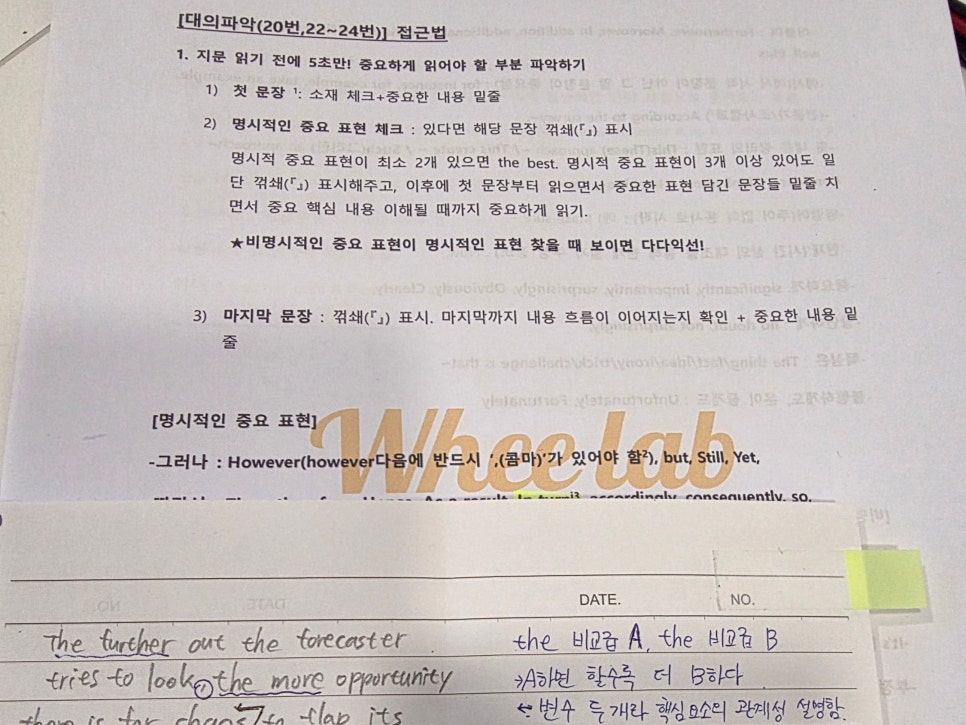 [대의파악(20번,22~24번)] 접근법
1. 지문 읽기 전에 5초만! 중요하게 읽어야 할 부분 파악하기
1) 첫 문장 ¹: 소재 체크+중요한 내용 밑줄
2) 명시적인 중요 표현 체크 : 있다면 해당 문장 꺾쇄(『』) 표시
명시적 중요 표현이 최소 2개 있으면 the best. 명시적 중요 표현이 3개 이상 있어도 일
단 꺾쇄(『』) 표시해주고, 이후에 첫 문장부터 읽으면서 중요한 표현 담긴 문장들 밑줄 치
면서 중요 핵심 내용 이해될 때까지 중요하게 읽기.
★비명시적인 중요 표현이 명시적인 표현 찾을 때 보이면 다다익선!
3) 마지막 문장 : 꺾쇄(『』) 표시. 마지막까지 내용 흐름이 이어지는지 확인 + 중요한 내용 밑
줄
[명시적인 중요 표현]
Wheelab
-그러나 : However(however다음에 반드시 ',(콤마)'가 있어야 함²), but, Still, Yet,
As a result, In turn¹³, accordingly, consequently, so,
DATE. NO.
The further out the forecaster
tries to look, the more opportunity
there is for chaos to flap its
the 비교급 A, the 비교급 B
→A하면 할수록 더 B하다
← 변수 두개라 핵심요소의 관계성 설명함